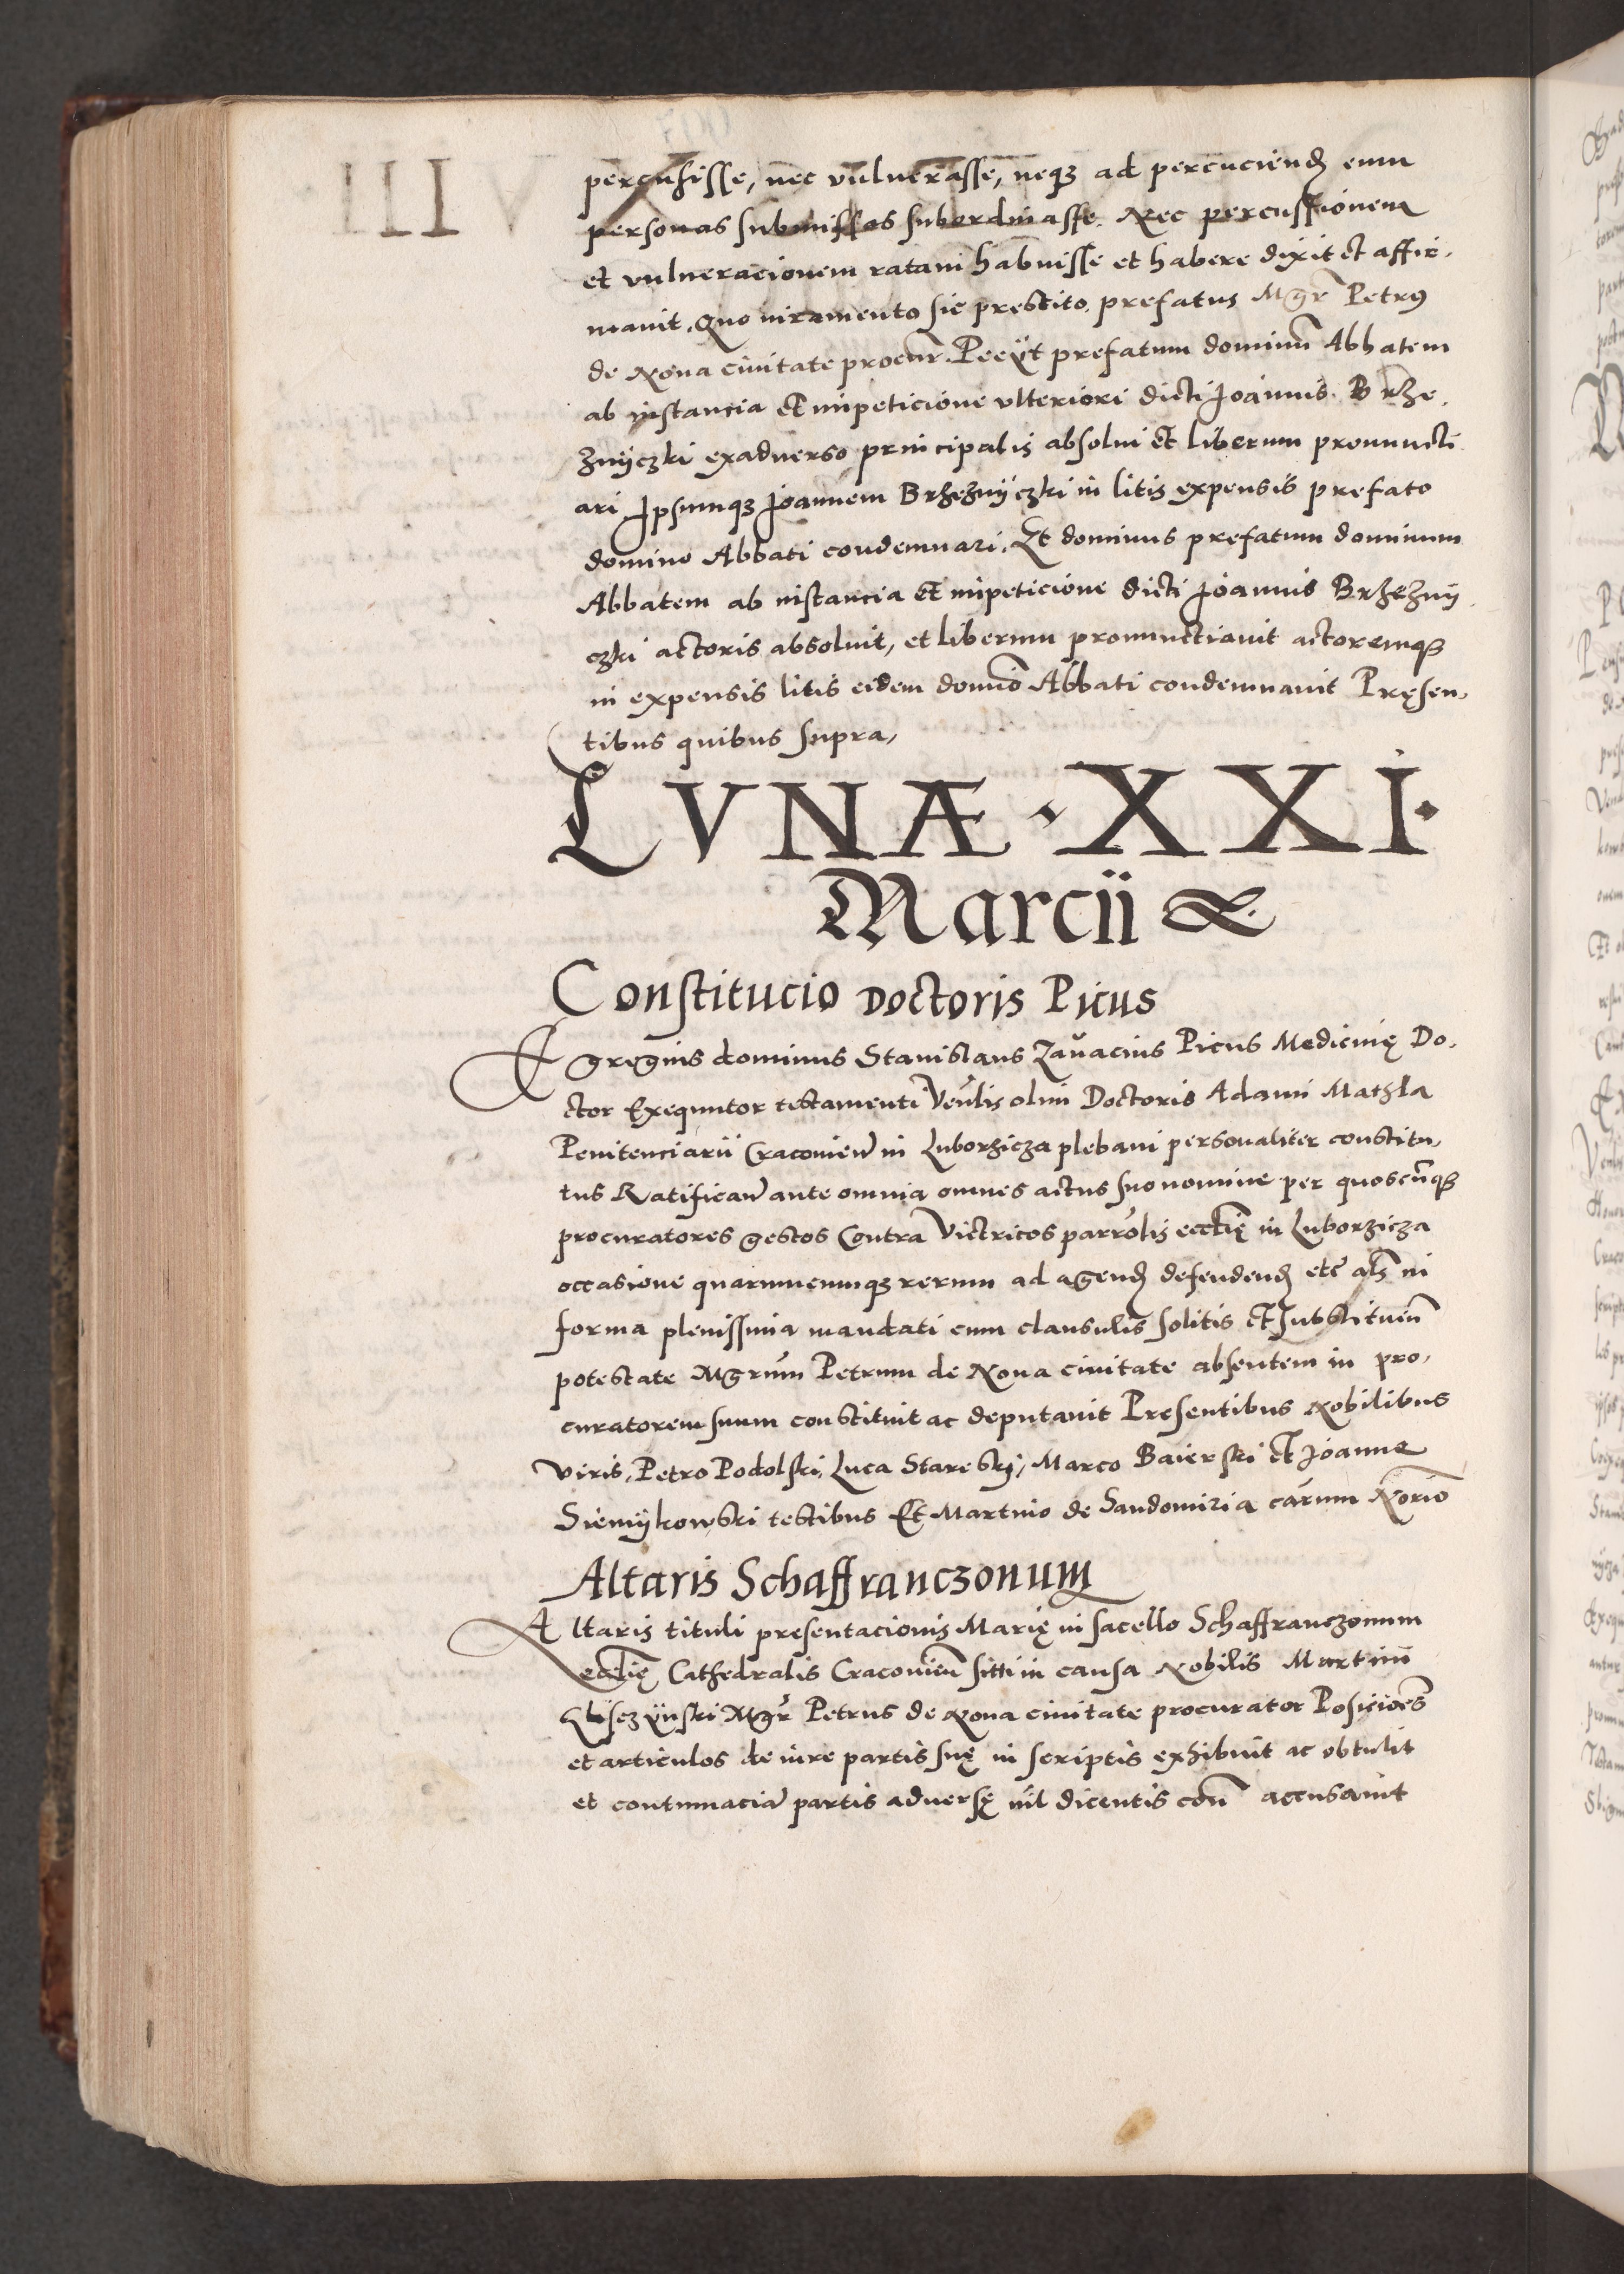 percusisse, nec vulnerasse, neqꝫ ad percuciendꝭ eum
personas submissas subordinasse. Nec percussionem
et vulneracionem ratam habuisse et habere dixit et affir,
mauit, Quo iuramento sic prestito, prefatus Mgr̃ Petrꝯ
de Noua ciuitate procur̃. Peeÿt prefatum dominũ Abbatem
ab instancia et impeticione vlteriori dicti Joannis Brze,
znÿczki exaduerso principalis absolui et liberum pronuncti
ari Ipsumqꝫ Joannem Brzeznÿczki in litis expensis prefato
domino Abbati condemnari. Et dominus prefatum dominum
Abbatem ab instancia et impeticione dicti Joannis Brzeznÿ
czki actoris absoluit, et liberum pronunctiauit actoremqꝫ
in expensis litis eidem domĩo Abbati condemnauit Pręsen,
tibus quibus supra,
LVNÆ · XXI ·
Marcii
Constitucio Doctoris Picus
Egregius dominus Stanislaus Zawacius Picus Medicinę Do,
ctor Exequutor testamenti Veñlis olim Doctoris Adami Mathla
Penitenciarii Cracovieñ in Luborzicza plebani personaliter constitu,
tus Ratificañ ante omnia omnes actus suo nomine per quoscũqꝫ
procuratores gestos Contra Victricos parrõlis ecclię in Luborzicza
occasione quarumcumqꝫ rerum ad agendꝭ defendendꝭ etc̃ als̃ in
forma plenissima mandati cum clausulis solitis et substituiñ
potestate Mgrũm Petrum de Noua ciuitate absentem in pro,
curatorem suum constituit ac deputauit Presentibus Nobilibus
viris, Petro Podolski, Luca Stareski, Marco Baierski et Joanne
Siemÿkowski testibus Et Martino de Sandomiria cãrum Norio
Altaris Schaffranczonum
Altaris tituli presentacionis Marię in sacello Schaffranczonum
ecclię Cathedralis Cracovieñ siti in causa Nobilis Martini
Mgr̃ Petrus de Noua ciuitate procurator Posicioẽs
et articulos de iure partis suę in scriptis exhibuit ac obtulit
et contumaciã partis aduersę nil dicentis coñ accusauit